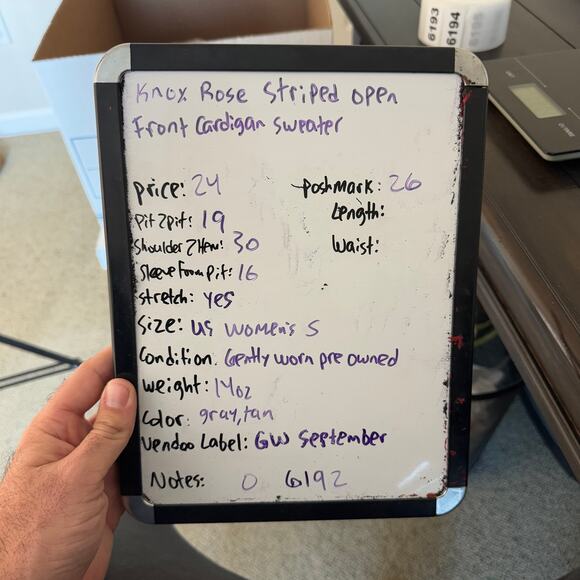 6193
6194
6195
Knox Rose Striped open
Front Cardigan sweater
price: 24
poshmark: 26
Pit2pit: 19
Length:
Shoulder2Hem: 30
Waist:
Sleeve From Pit: 16
stretch: yes
Size: US women's S
Condition: Gently worn pre owned
weight: 14oz
Color: gray, tan
Vendoo Label: GW September
Notes: 0 6192